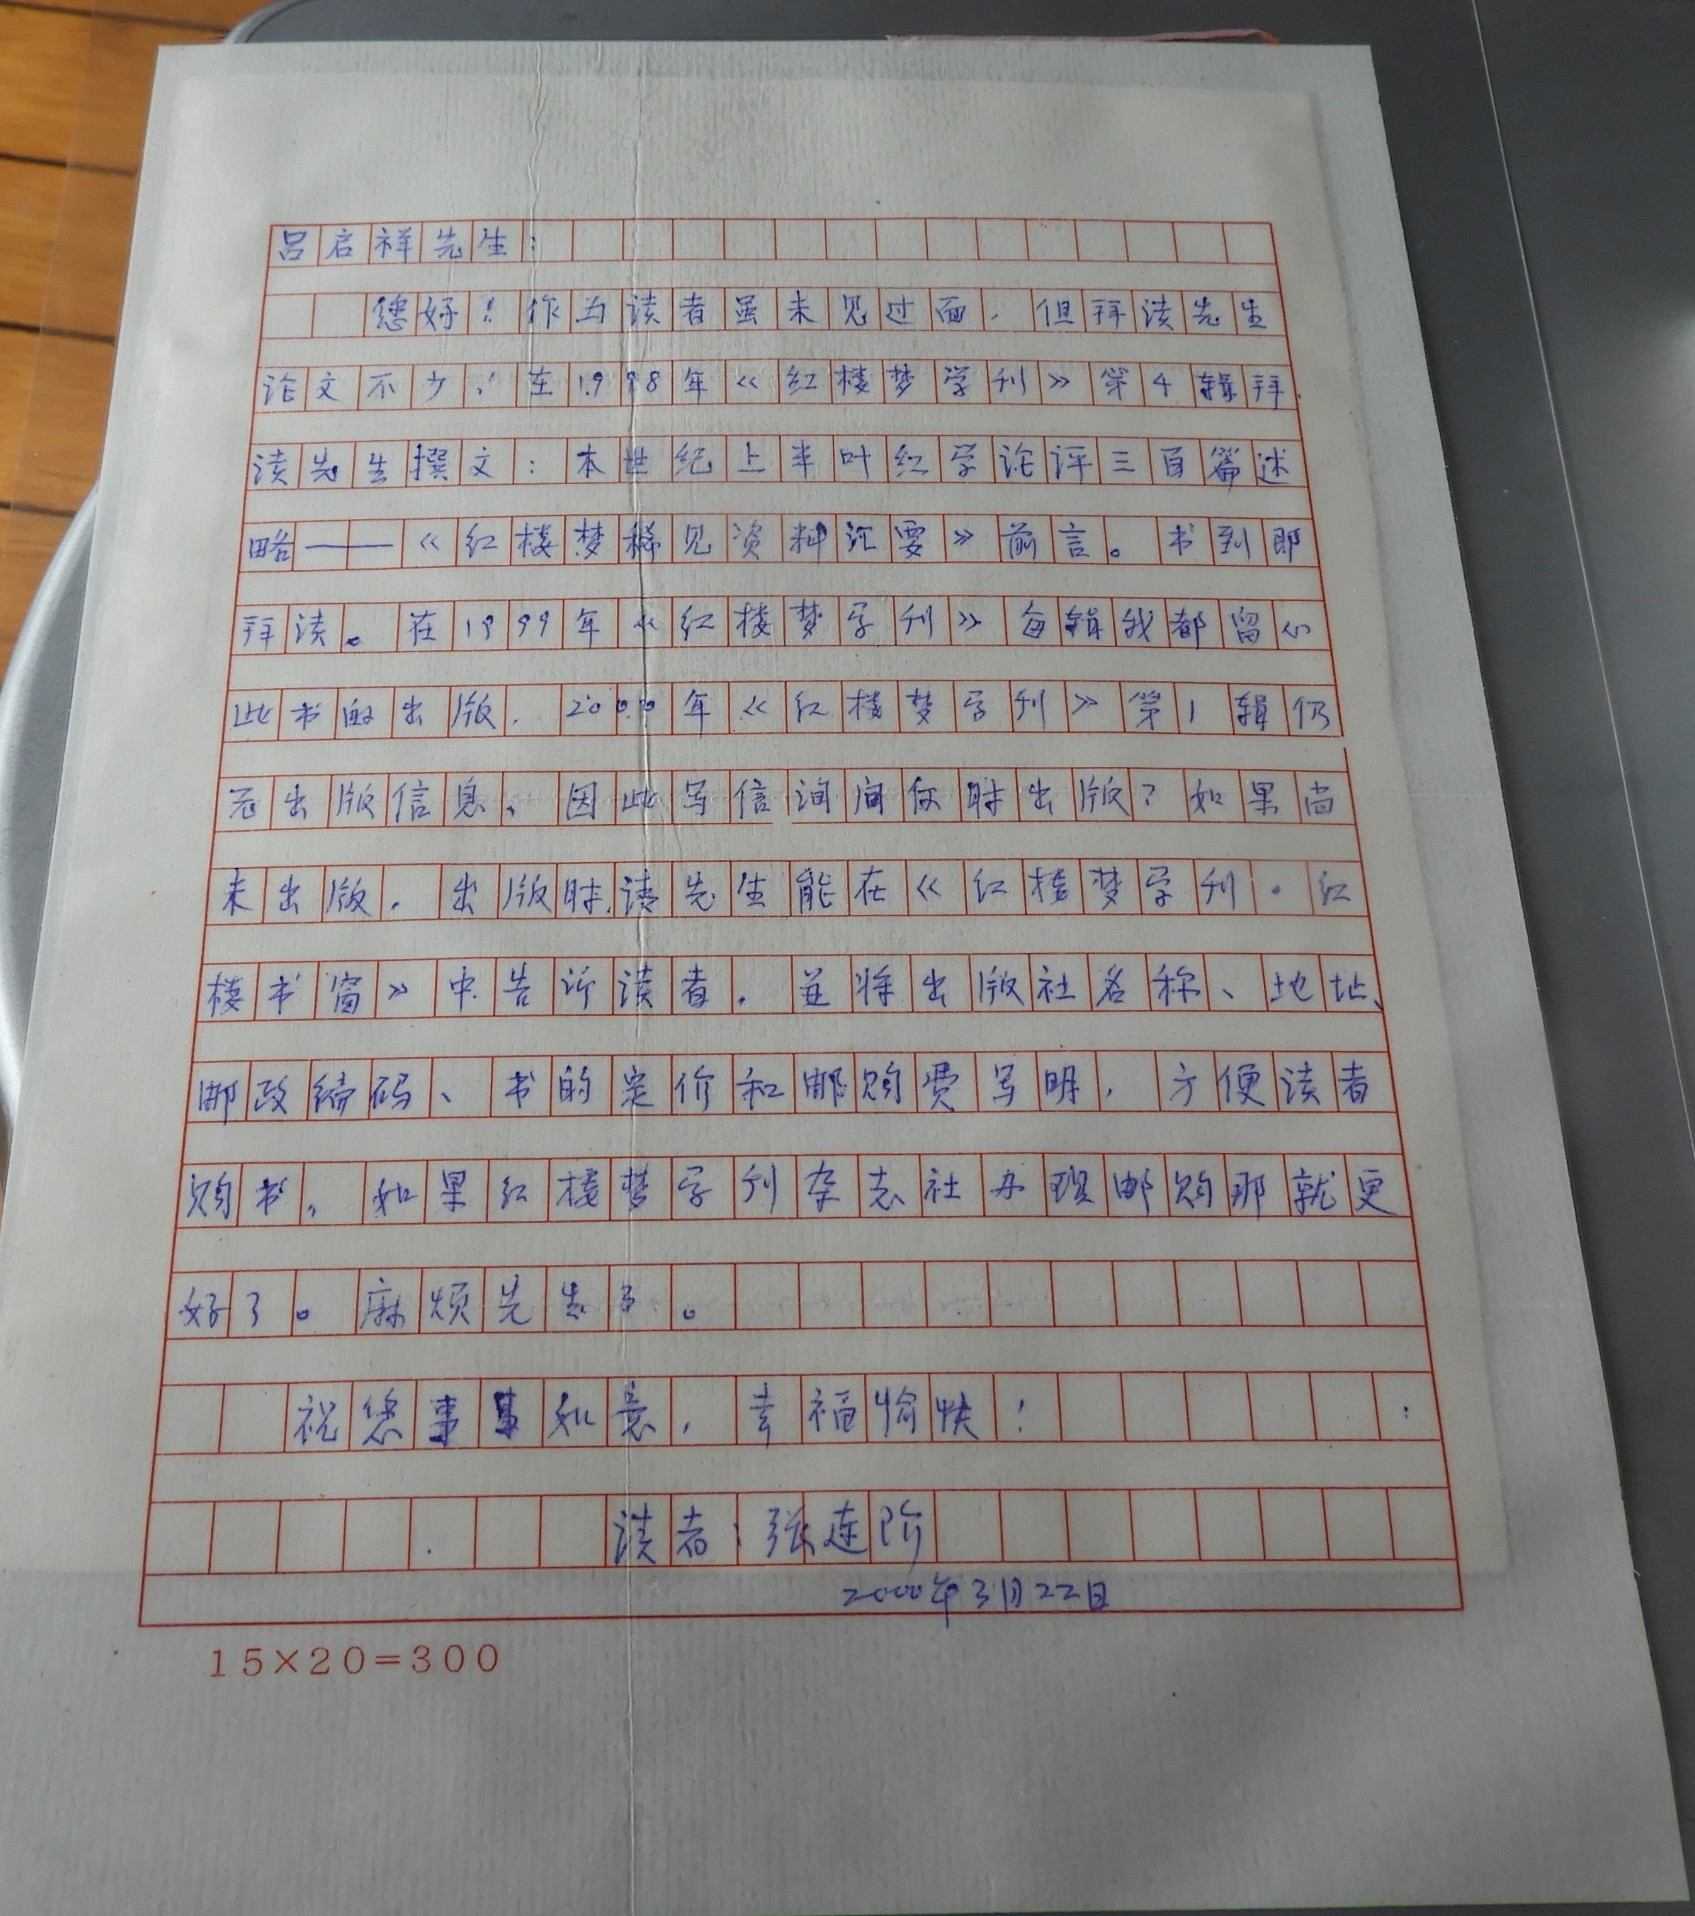 吕启祥先生：
您好！作为读者虽未见过面，但拜读先生
论文不少，在1998年《红楼梦学刊》第4辑拜
读先生撰文：本世纪上半叶红学论评三百篇述
略——《红楼梦稀见资料汇要》前言。书到即
拜读。在1999年《红楼梦学刊》每辑我都留心
此书的出版，2000年《红楼梦学刊》第1辑仍
无出版信息，因此写信询问何时出版？如果尚
未出版，出版时，请先生能在《红楼梦学刊·红
楼书窗》中告诉读者，并将出版社名称、地址、
邮政编码、书的定价和邮购费写明，方便读者
购书，如果红楼梦学刊杂志社办理邮购那就更
好了。麻烦先生了。
祝您事事如意，幸福愉快！
读者：张连阶
2000年3月22日
15×20=300